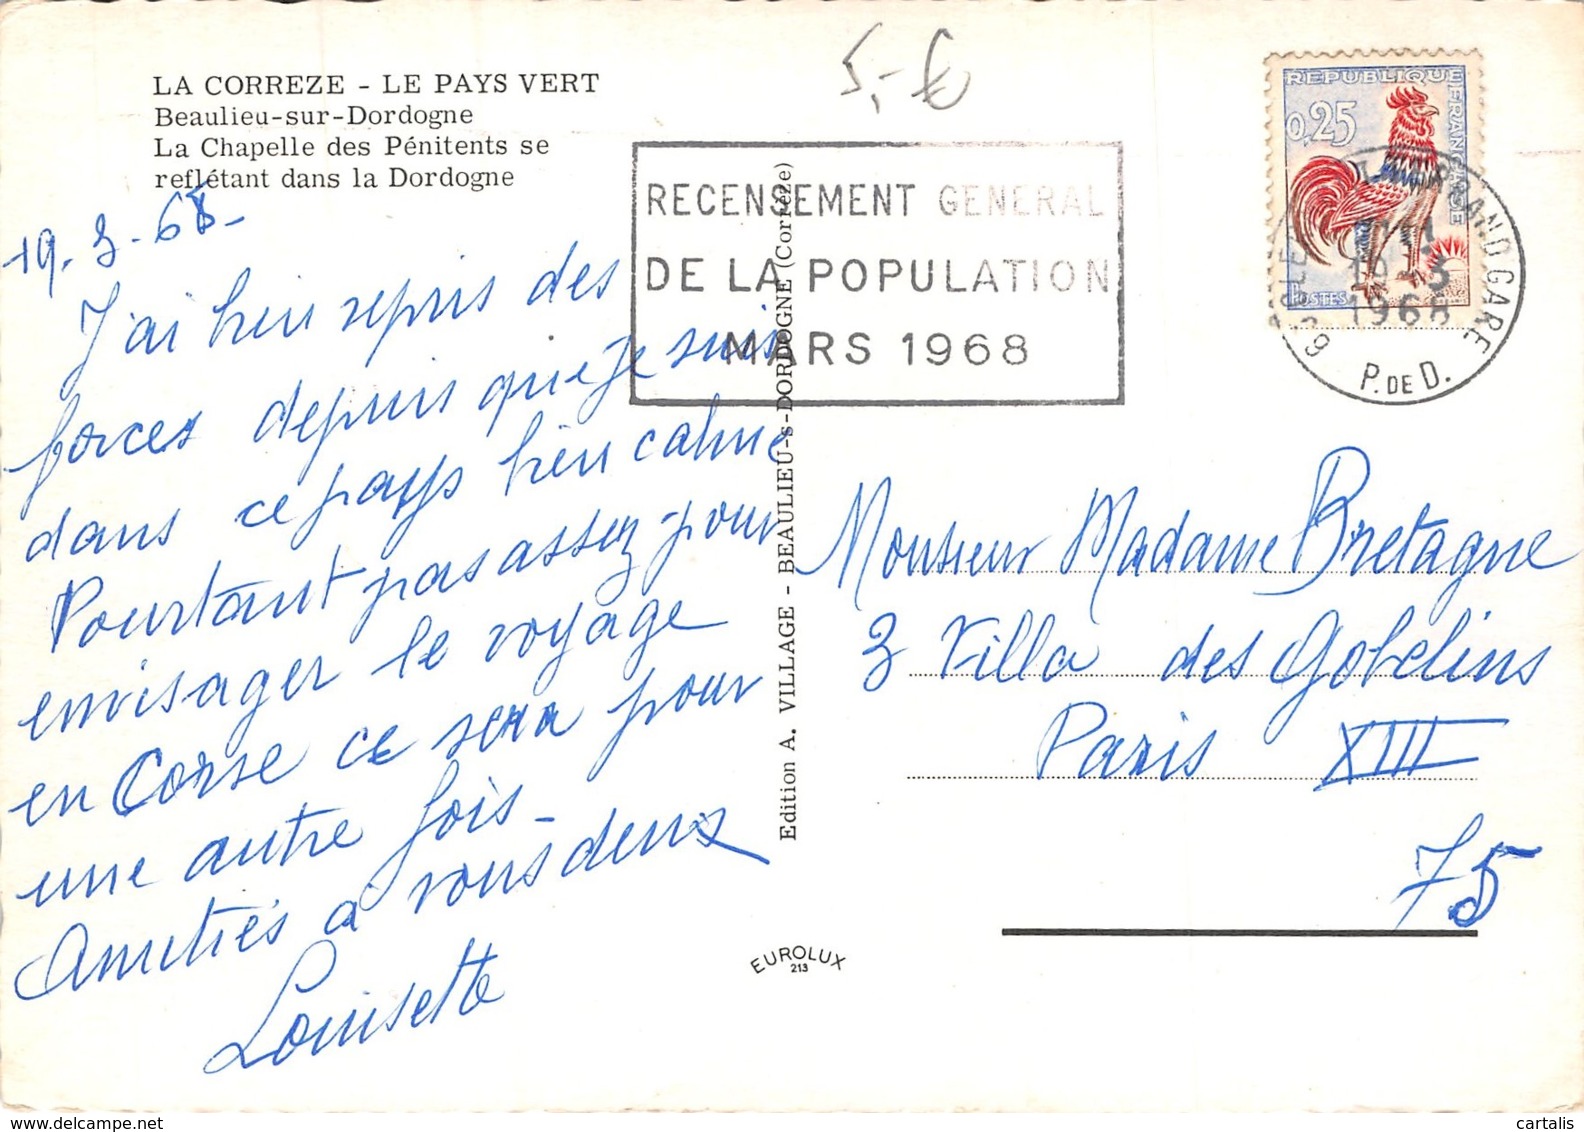 LA CORREZE - LE PAYS VERT
Beaulieu-sur-Dordogne
La Chapelle des Pénitents se
reflétant dans la Dordogne
5,- €
19. 3. 68-
J'ai bien repris des
forces depuis que je suis
dans ce pays bien calme
Pourtant pas assez pour
envisager le voyage
en Corse ce sera pour
une autre fois-
Amitiés à vous deux
Louisette
RECENSEMENT GENERAL
DE LA POPULATION
MARS 1968
Edition A. VILLAGE - BEAULIEU-s-DORDOGNE (Corrèze)
EUROLUX
213
REPUBLIQUE FRANCAISE
0,25
POSTES
GARE
1968
P. DE D.
Monsieur Madame Bretagne
3 Villa des Gobelins
Paris XIII
75
cartalis